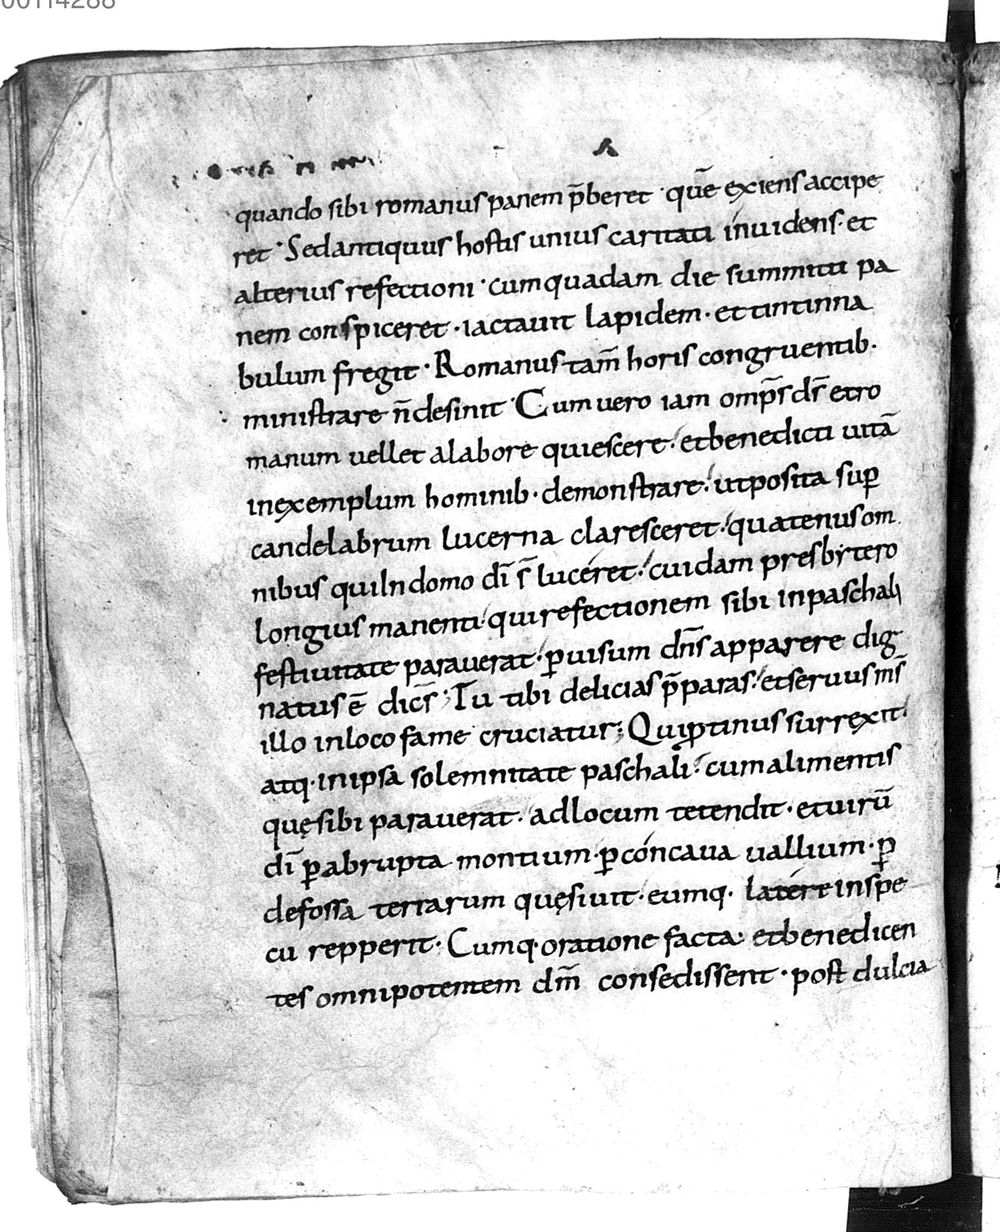 00114288
quando sibi romanus panem p̄beret · quē exiens accipe
ret · Sed antiquus hostis unius caritati invidens · et
alterius refectioni · cum quadam die summitti pa
nem conspiceret · iactavit lapidem · et tintinna
bulum fregit · Romanus tam̄ horis congruentib·
ministrare n̄ desinit · Cum vero iam omp̄s ds̄ et ro
manum vellet a labore quiescere · et benedicti vitā
in exemplum hominib· demonstrare · ut posita suꝑ
candelabrum lucerna claresceret · quatenus om
nibus qui In domo dī s̄ luceret · cuidam presbytero
longius manenti qui refectionem sibi in paschali
festivitate paraverat · ꝑ visum dn̄s apparere dig
natus ē dicc̄s · Tu tibi delicias p̄paras · et servus ms̄
illo in loco fame cruciatur; Qui ꝓtinus surrexit·
atq· in ipsa solemnitate paschali · cum alimentis
quę sibi paraverat · ad locum tetendit · et virū
dī ꝑ abrupta montium · ꝑ concava vallium · ꝑ
defossa terrarum quęsivit · eumq· latere in spe
cu repperit · Cumq· oratione facta · et benedicen
tes omnipotentem dm̄ consedissent · post dulcia